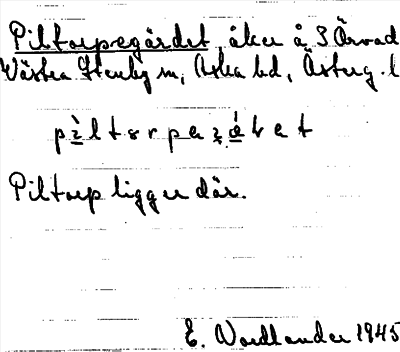 Piltorpegärdet, åker å 3 Ärvad
Västra Stenby sn, Aska hd, Österg. l
Piltorp ligger där.
E. Nordlander 1945